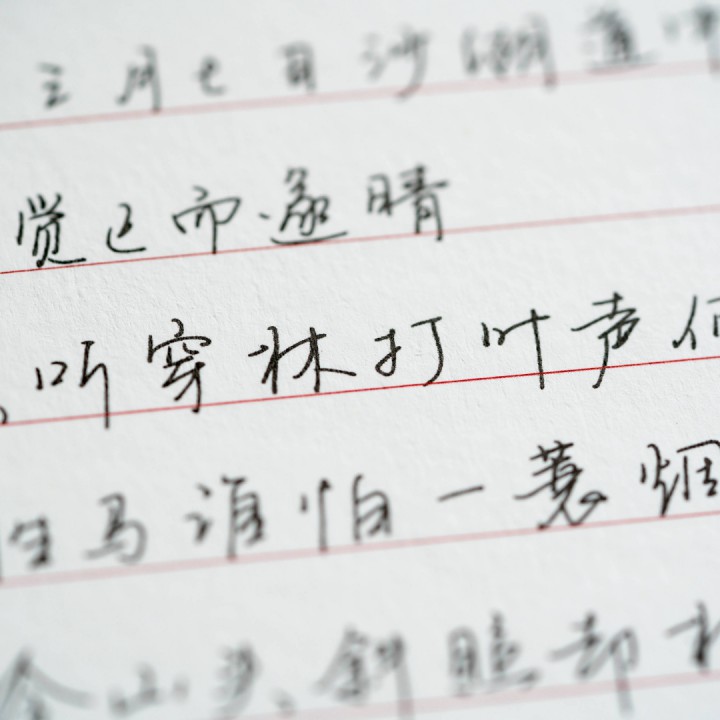 三月七日沙湖道中
觉已而遂晴
听穿林打叶声何
胜马谁怕一蓑烟
山头斜照却